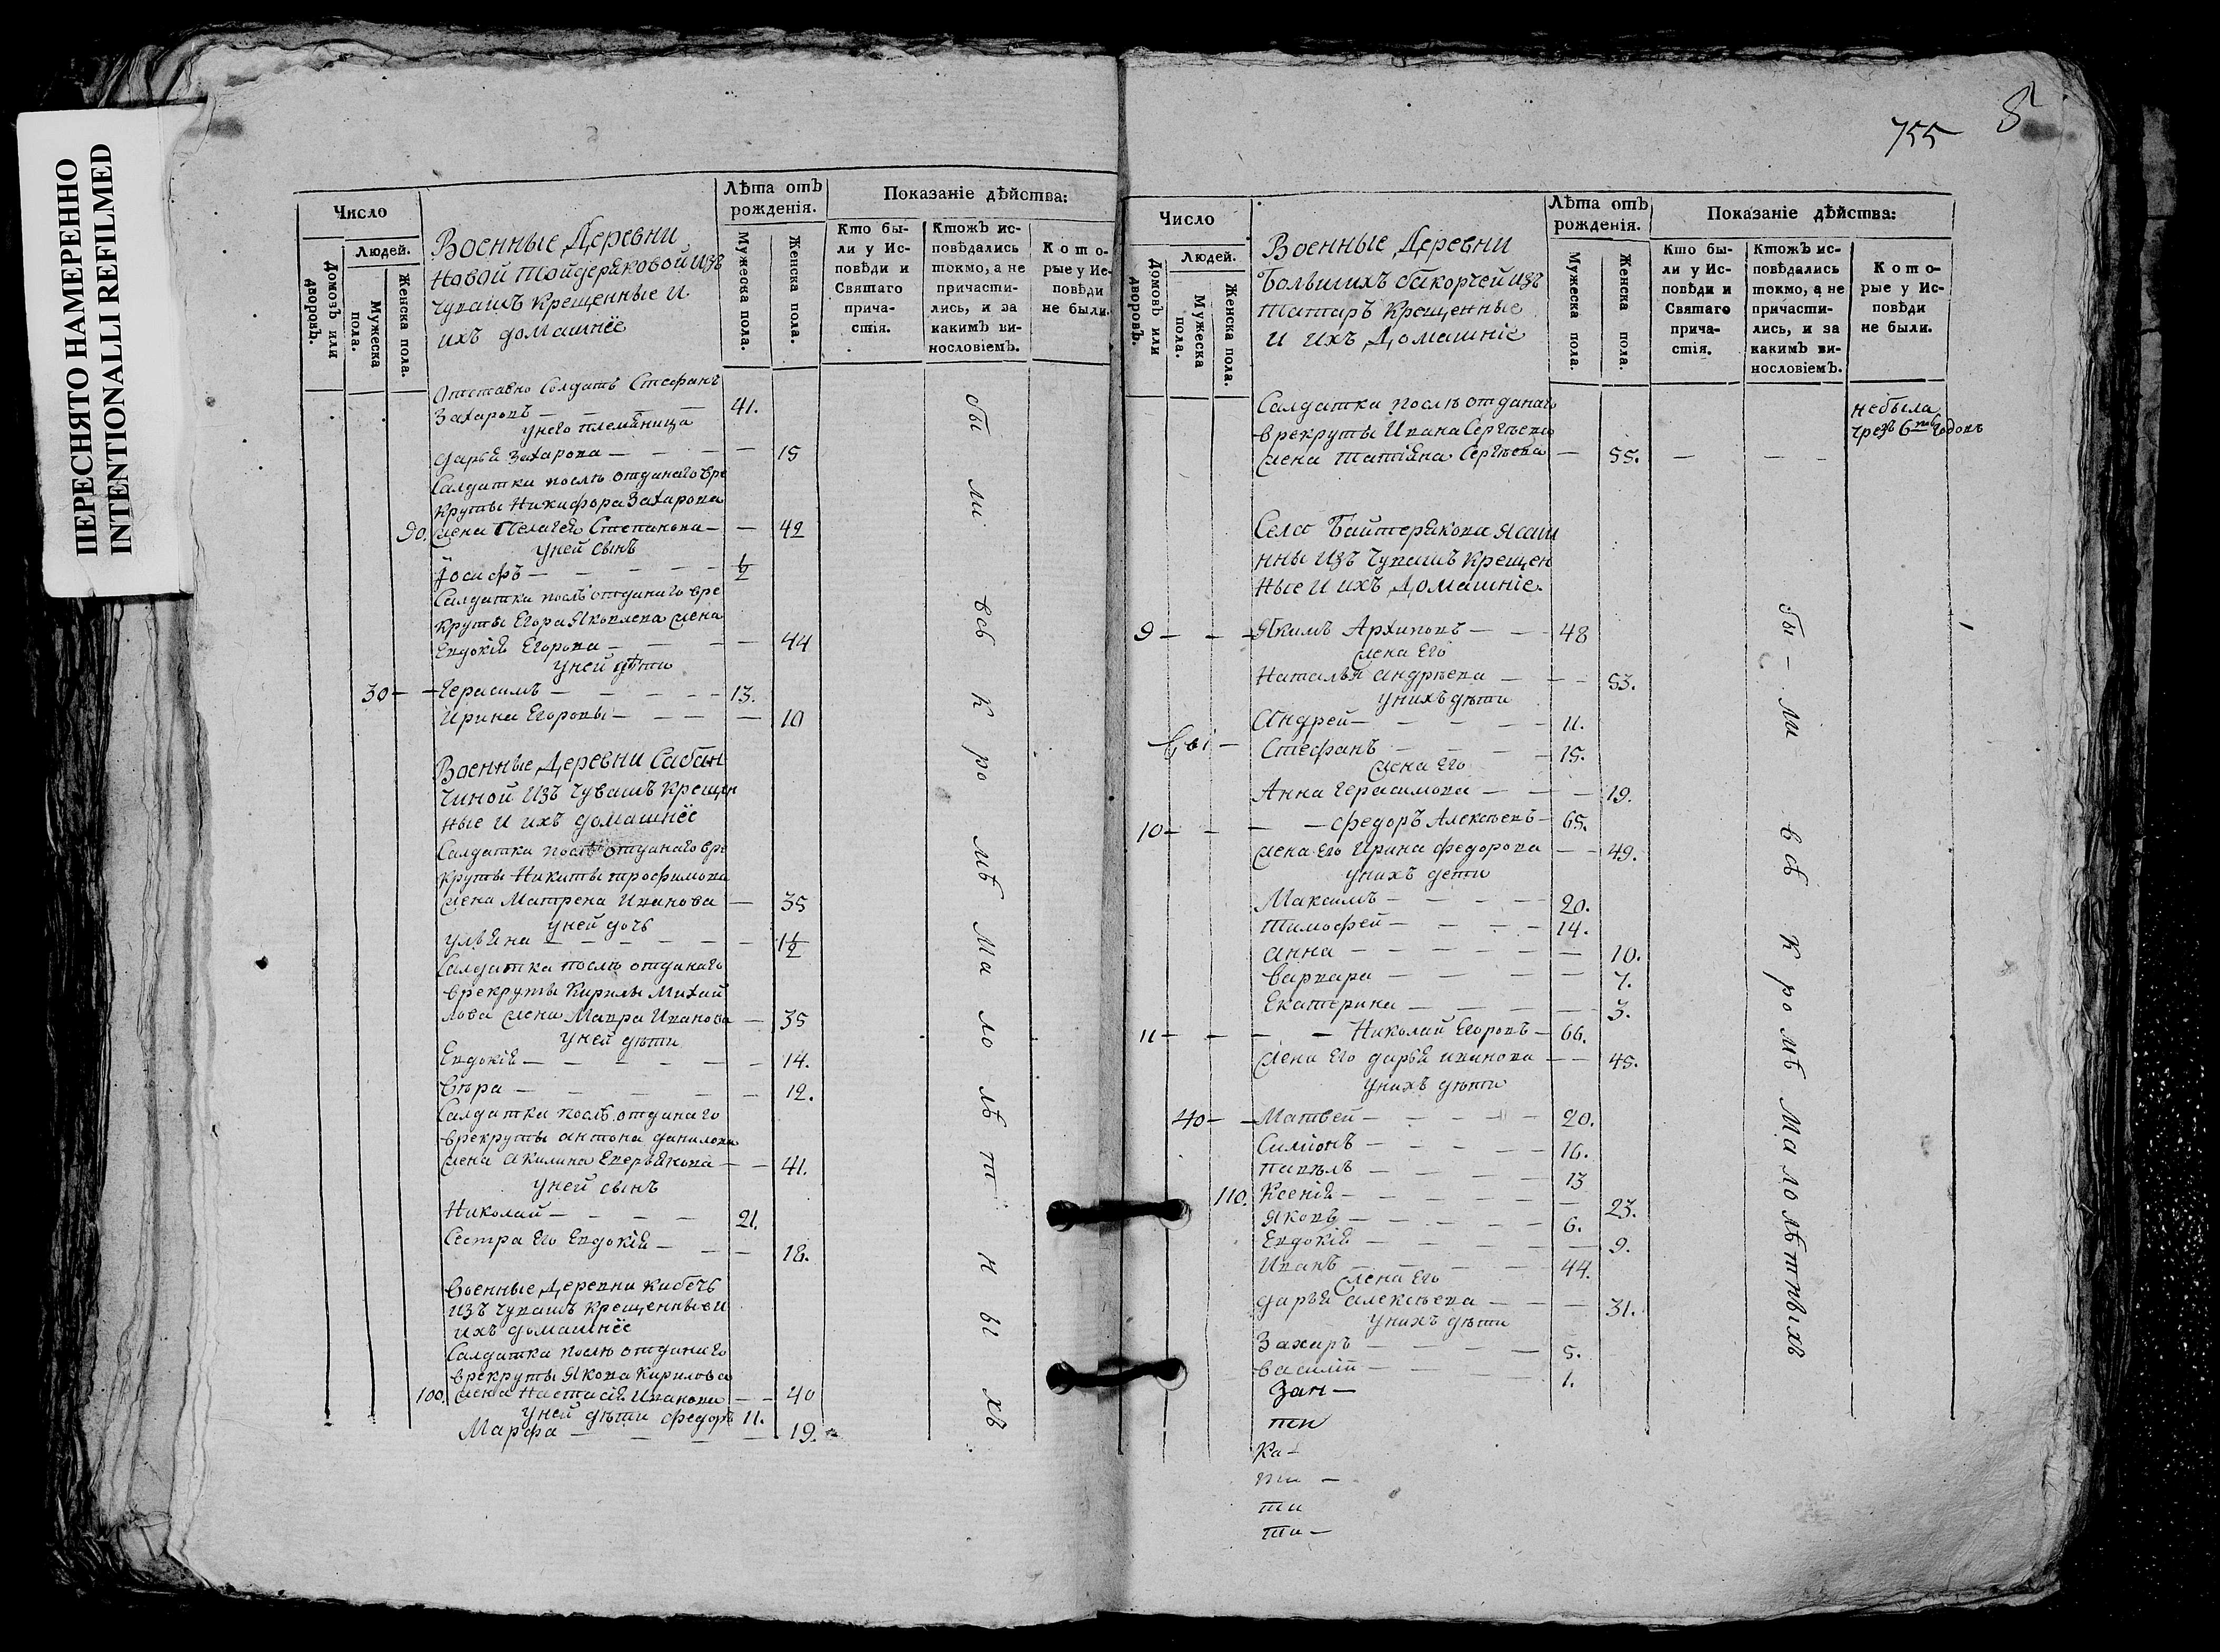 ПЕРЕСНЯТО НАМЕРЕННО
INTENTIONALLI REFILMED
Число
Людей.
Домовъ или дворовъ.
Мужеска пола.
Женска пола.
Военные Деревни
Новой Тойдеряковой изъ
Чувашъ крещенные и
ихъ домашнее
Лѣта отъ рожденія.
Мужеска пола.
Женска пола.
Показаніе дѣйства:
Кто были у Исповѣди и Святаго причастія.
Ктожъ исповѣдались токмо, а не причастились, и за какимъ винословіемъ.
Которые у Исповѣди не были.
Отставно Солдатъ Стефанъ
Захаровъ — 41.
унего племяница
Дарья Захарова — 15
Салдатка послѣ отданаго вре
круты Никифора Захарова
90. жена Пелагея Степанова — 42
уней сынъ
Іосифъ — 1/2
Салдатка послѣ отданаго вре
круты Егора Яковлева жена
Евдокія Егорова — 44
уней дѣти
30 — Герасимъ — 13.
Ирина Егоровы — 10
Военные Деревни Сабан
чиной изъ Чувашъ крещен
ные и ихъ домашнее
Салдатка послѣ отданаго вре
круты Никиты трофимова
жена Матрена Иванова — 35
уней дочь
ульяна — 1 1/2
Салдатка послѣ отданаго
врекруты Кирилы Михай
лова жена Мавра Иванова — 35
уней дѣти
Евдокія — 14.
Вѣра — 12.
Салдатка послѣ отданаго
врекруты антона данилова
жена акилина Аверьянова — 41.
уней сынъ
Николай — 21.
Сестра Его Евдокія — 18.
Военные Деревни Кибечь
изъ чувашъ крещенные и
ихъ домашнее
Салдатка послѣ отданаго
врекруты Якова Кирилова
100. жена Настасія Иванова — 40
уней дѣти федоръ 11.
Марфа — 19.
бы ли всѣ кромѣ малолѣтныхъ
755
8
Число
Людей.
Домовъ или дворовъ.
Мужеска пола.
Женска пола.
Военные Деревни
Большихъ
изъ
татаръ Крещенные
и ихъ Домашніе
Лѣта отъ рожденія.
Мужеска пола.
Женска пола.
Показаніе дѣйства:
Кто были у Исповѣди и Святаго причастія.
Ктожъ исповѣдались токмо, а не причастились, и за какимъ винословіемъ.
Которые у Исповѣди не были.
Салдатка послѣ отданаго
врекруты Ивана Сергѣева
жена Татіяна Сергѣева — 55.
небыла
чрезъ 6 годовъ
Села Байтерякова Ясаш
нны изъ Чувашъ Крещен
ные и ихъ Домашніе.
9 — Якимъ Архиповъ — 48
жена Его
Наталья андрѣева — 53.
унихъ дѣти
Андрей — 11.
Стефанъ — 15.
жена Его
Анна Герасимова — 19.
10 — федоръ Алексѣевъ — 65.
жена Его Ирина федорова — 49.
унихъ дети
Максимъ — 20.
Тимофей — 14.
анна — 10.
Варвара — 7.
Екатерина — 3.
11 — Николай Егоровъ — 66.
жена Его дарья иванова — 45.
унихъ дѣти
40 — Матвей — 20.
Симіонъ — 16.
павѣлъ — 13
110. Ксенія — 23.
Яковъ — 6.
Евдокія — 9.
Иванъ — 44.
жена Его
дарья алексѣева — 31.
унихъ дѣти
Захаръ — 5.
Василій — 1.
бы — ли всѣ кромѣ малолѣтныхъ
Зап —
ти
ка —
ти
ти —